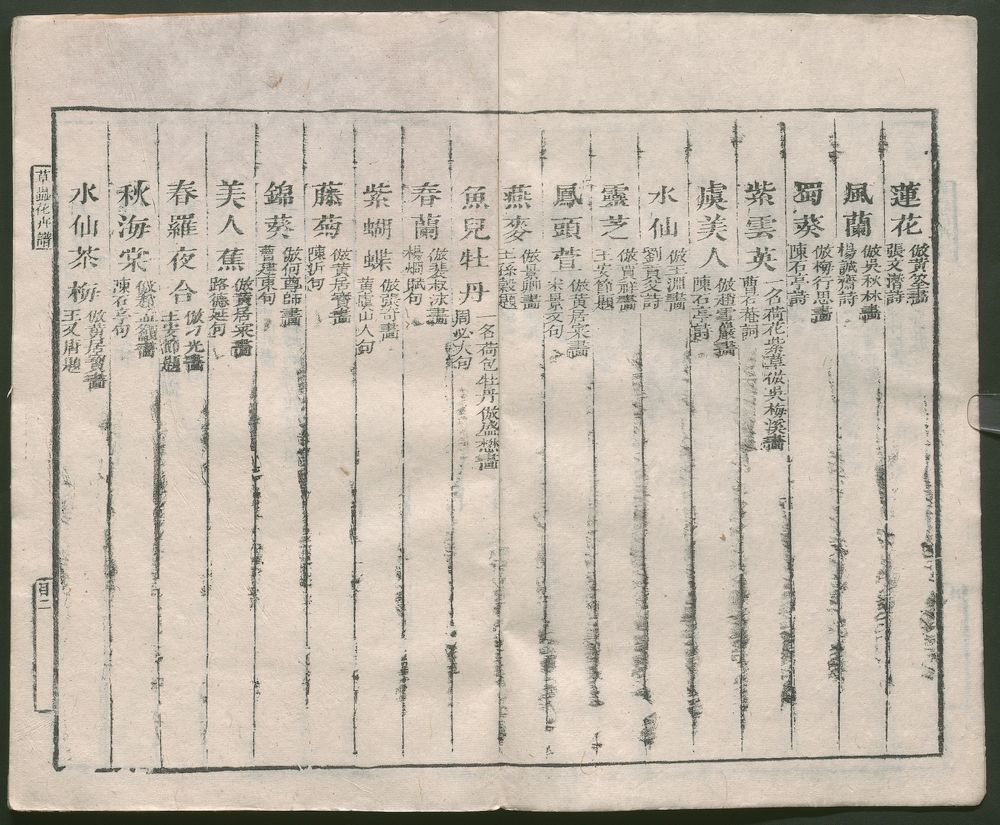 蓮花 倣黃筌畫 張文潛詩
風蘭 倣吳秋林畫 楊誠齋詩
蜀葵 倣梅行思畫 陳石亭詩
紫雲英 一名荷花紫草倣吳梅溪畫 曹石菴詞
虞美人 倣趙雪巖畫 陳石亭詩
水仙 倣王淵畫 劉貢父詩
靈芝 倣賈祥畫 王安節題
鳳頭菅 倣黃居寀畫 宋景文句
燕麥 倣景卿畫 王孫穀題
魚兒牡丹 一名荷包牡丹倣盛懋畫 周必大句
春蘭 倣裴叔泳畫 楊炯賦句
紫蝴蝶 倣張奇畫 董虛山人句
藤菊 倣黃居寶畫 陳沂句
錦葵 倣何尊師畫 曹建東句
美人蕉 倣黃居寀畫 路德延句
春羅夜合 倣刁光畫 王安節題
秋海棠 陳石亭句
水仙茶梅 倣黃居寶畫 王叉唐題
草蟲花卉譜
目二